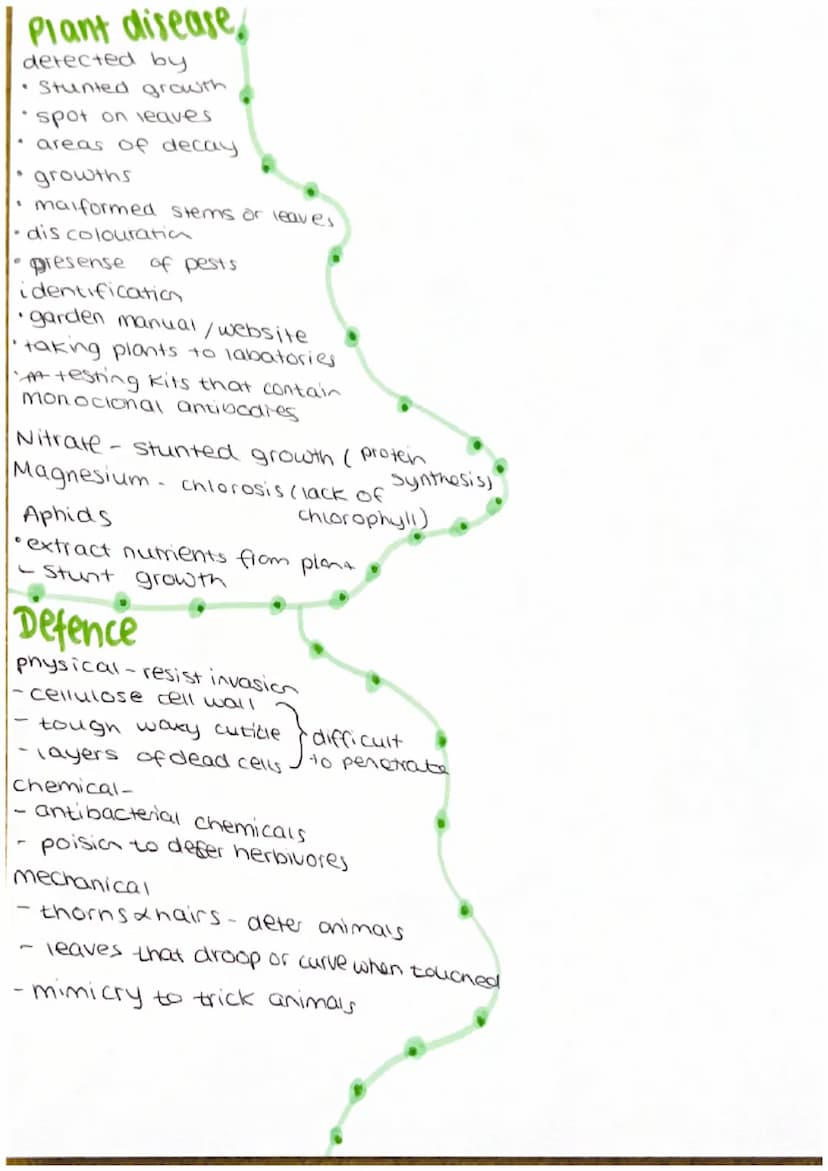 Plant disease
detected by
• Stunted growth
• spot on leaves
• areas of decay
• growths
• malformed stems or leaves
• discolouration
• presense of pests
identification
• garden manual/website
• taking plants to labatories
• testing kits that contain
monoclonal antibodies
Nitrate - stunted growth (protein
synthesis)
Magnesium - chlorosis (lack of
chlorophyll)
Aphids
• extract nutrients from plant
- Stunt growth
Defence
physical - resist invasion
- cellulose cell wall
- tough waxy cuticle
- layers of dead cells
difficult
to penetrate
chemical -
- antibacterial chemicals
- poision to defer herbivores
mechanical
- thorns & hairs - deter animals
- leaves that droop or curve when touched
- mimicry to trick animals